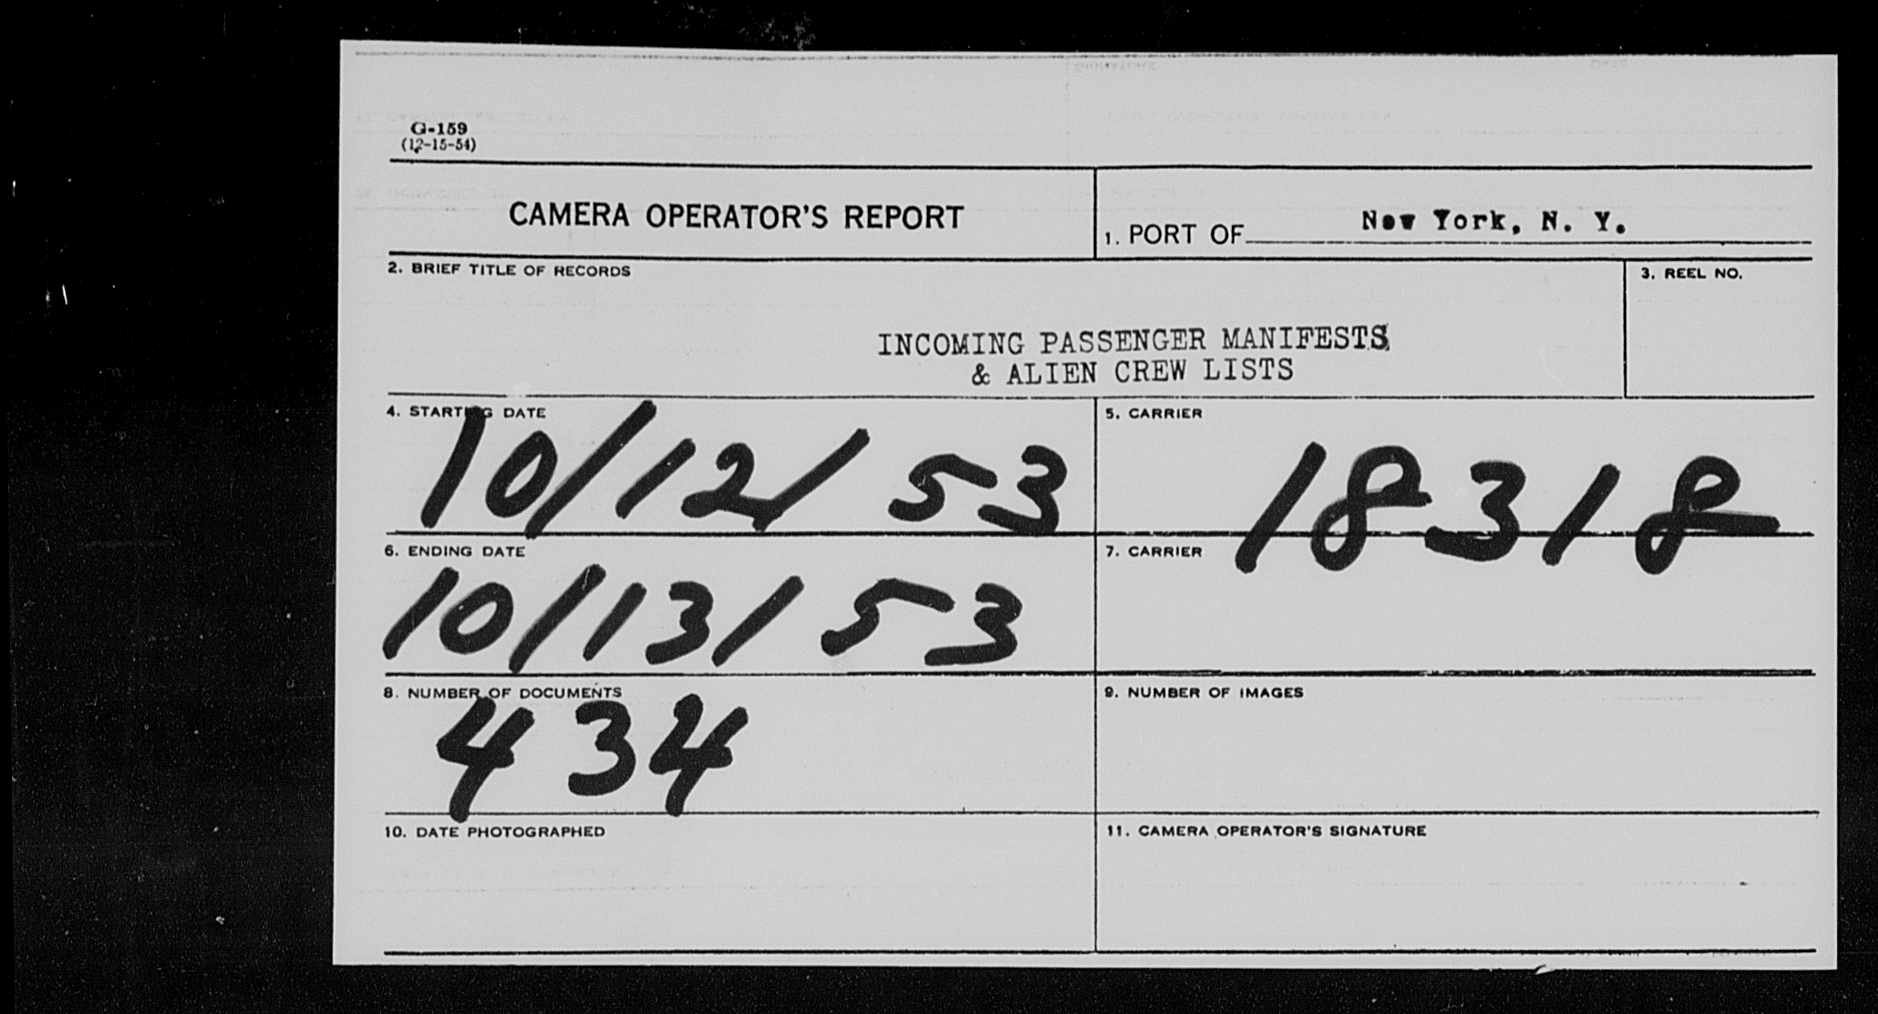 G-159
(12-15-54)
CAMERA OPERATOR'S REPORT
1. PORT OF New York, N. Y.
2. BRIEF TITLE OF RECORDS
3. REEL NO.
INCOMING PASSENGER MANIFESTS
& ALIEN CREW LISTS
4. STARTING DATE
10/12/53
5. CARRIER
18318
6. ENDING DATE
10/13/53
7. CARRIER
8. NUMBER OF DOCUMENTS
434
9. NUMBER OF IMAGES
10. DATE PHOTOGRAPHED
11. CAMERA OPERATOR'S SIGNATURE